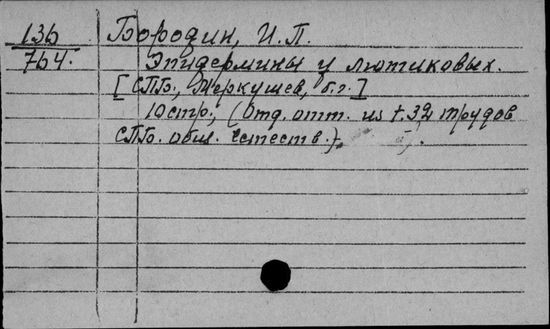 136
764.
Бородин, И.П.
Эпидермины у лютиковых.
[СПБ., Меркушев, б.г.]
10 стр., (Отд. отт. из т.32 трудов
СПБ. общ. естеств.).